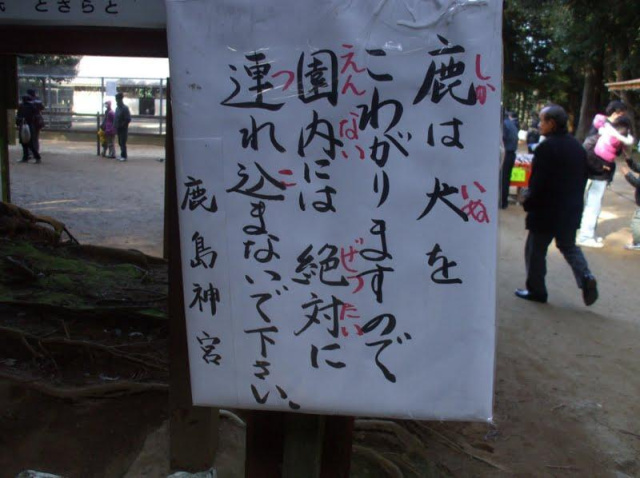 鹿は犬を
こわがりますので
園内には絶対に
連れ込まないで下さい、
鹿島神宮
しか
いぬ
えんない
ぜったい
つ
こ
とさらと